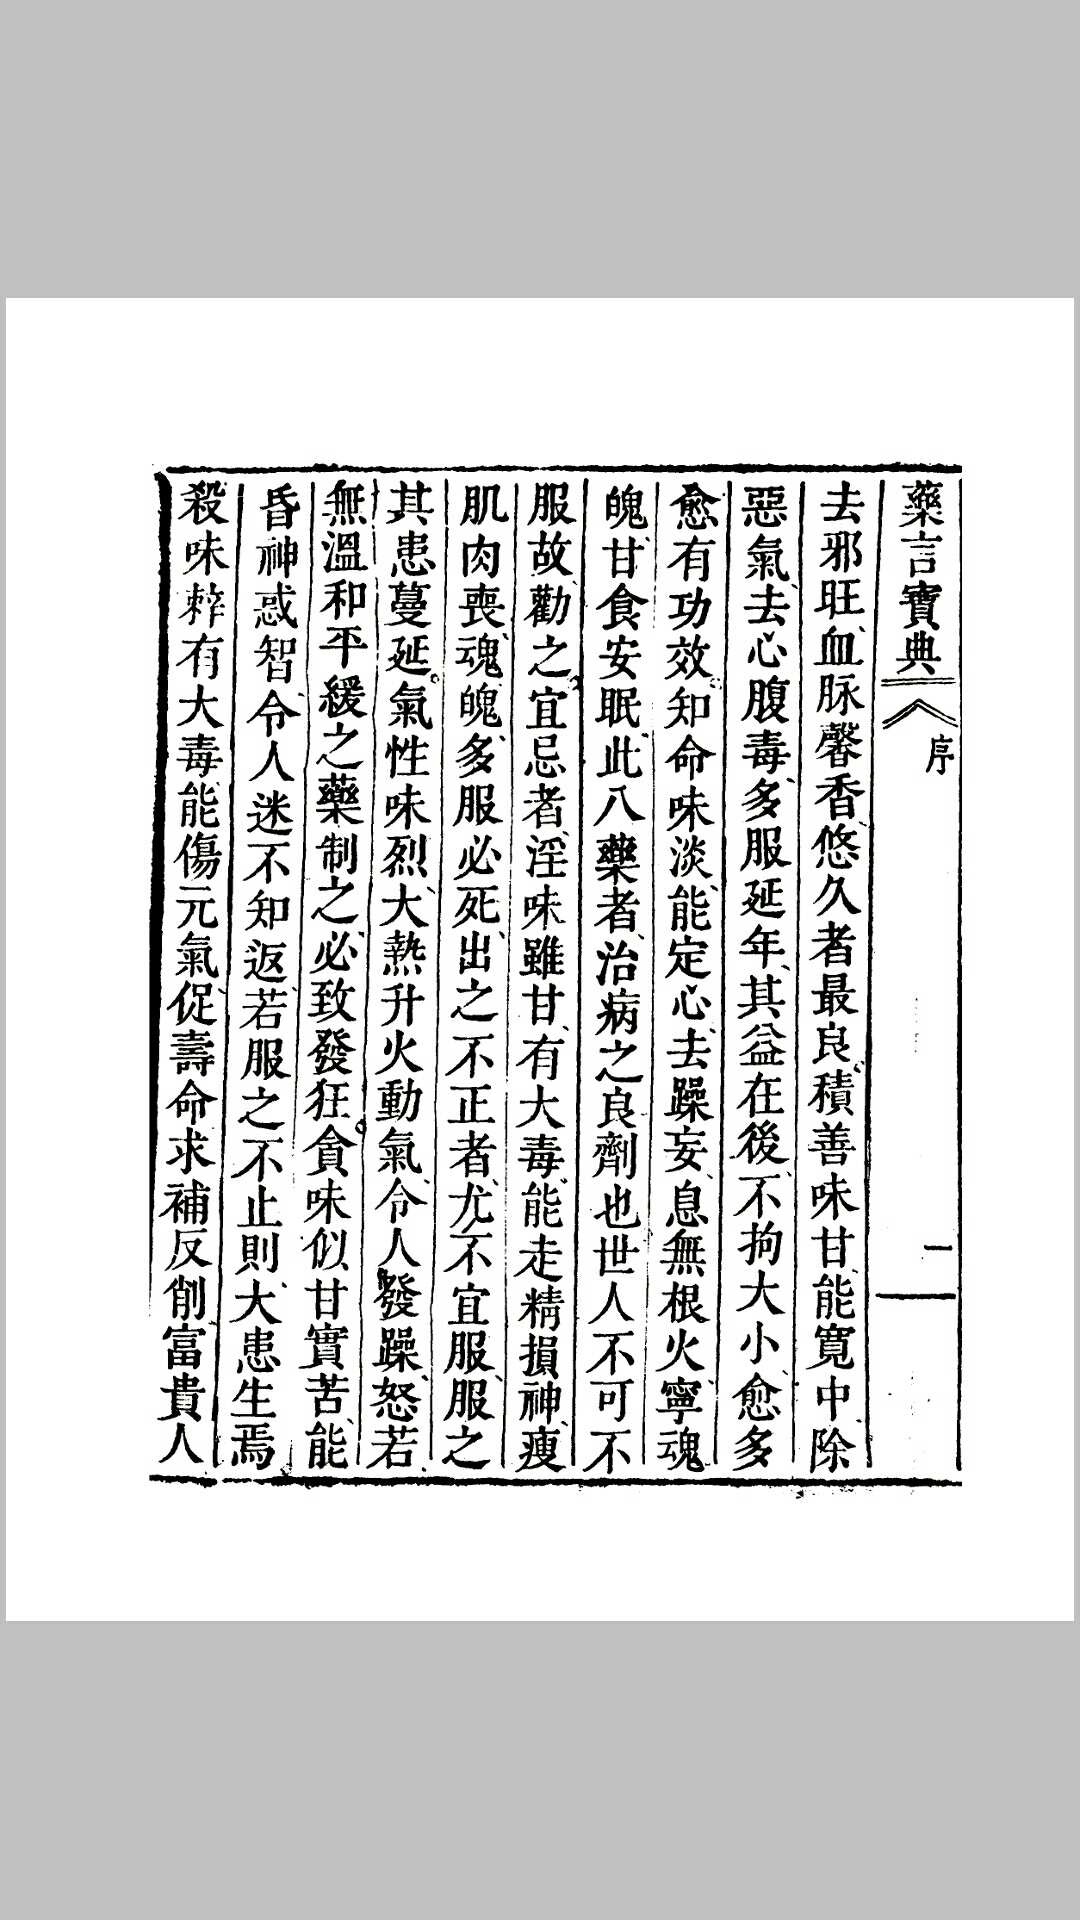 藥言寶典
序
二
去邪旺、血脉馨香、悠久者最良。積善味甘、能寬中、除
惡氣、去心腹毒、多服延年、其益在後、不拘大小、愈多
愈有功效。知命味淡、能定心、去躁妄、息無根火、寧魂
魄、甘食安眠、此八藥者、治病之良劑也世人不可不
服故勸之。宜忌者、淫味雖甘、有大毒、能走精損神、瘦
肌肉喪、魂魄、多服必死、出之不正者、尤不宜服、服之
其患蔓延。氣性味烈、大熱升火動氣、令人發躁怒、若
無溫和平緩之藥制之、必致發狂。貪味似甘實苦、能
昏神惑智、令人迷不知返、若服之不止則大患生焉
殺味辢有大毒、能傷元氣、促壽命求補反削富貴人